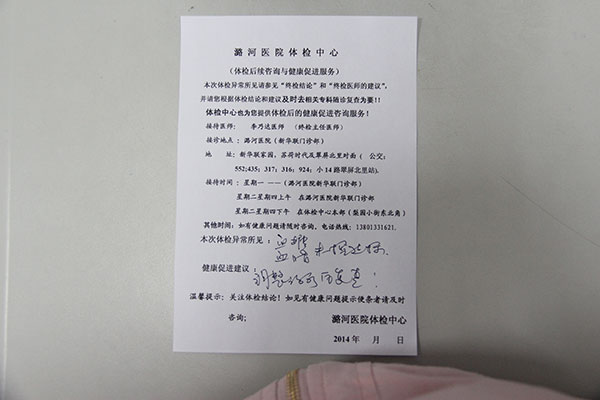 潞河医院体检中心
(体检后续咨询与健康促进服务)
本次体检异常所见请参见“终检结论”和“终检医师的建议”,
并请您根据体检结论和建议及时去相关专科随诊复查为要!!
体检中心也为您提供体检后的健康促进咨询服务!
接待医师: 李乃达医师 (终检主任医师)
接诊地点: 潞河医院(新华联门诊部)
地 址: 新华联家园,苏荷时代及翠屏北里对面( 公交:
552;435; 317; 316; 924; 小14路翠屏北里站).
接待时间: 星期一 ——(潞河医院新华联门诊部)
星期二星期四上午 在潞河医院新华联门诊部
星期二星期四下午 在体检中心本部(梨园小街东北角)
其他时间: 如有健康问题请随时咨询, 电话热线: 13801331621.
本次体检异常所见: 血糖
血脂 未
健康促进建议: 调整 复查!
温馨提示: 关注体检结论! 如见有健康问题提示使条者请及时
咨询;
潞河医院体检中心
2014 年 月 日